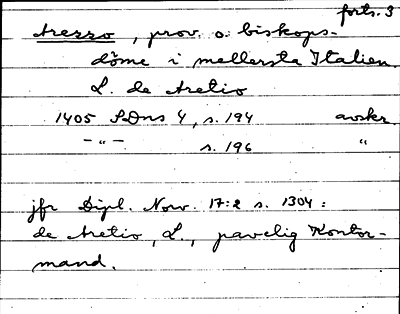 forts. 3
Arezzo, prov. o. biskops-
döme i mellersta Italien.
L. de Aretio
1405 SDns 4, s. 194 avskr.
-"- s. 196 "
jfr Dipl. Norv. 17:2 s. 1304:
de Aretio, L., pavelig Kontor-
mand.